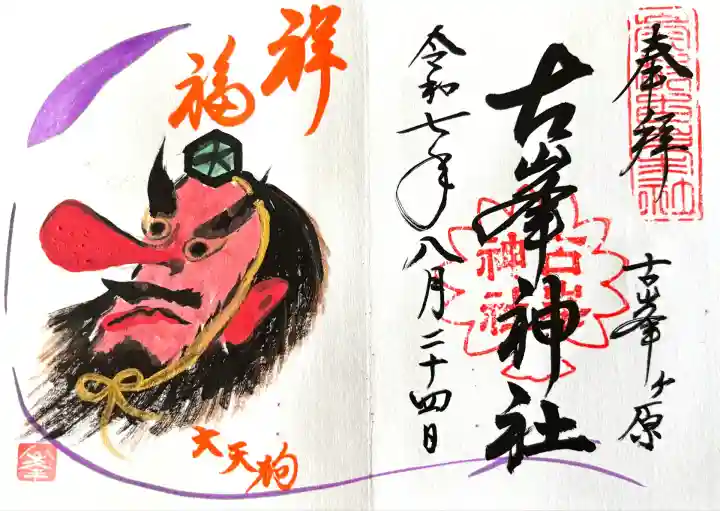 奉拝
古峯ヶ原
古峯神社
古峯
神社
令和七年八月二十四日
祥
福
大天狗